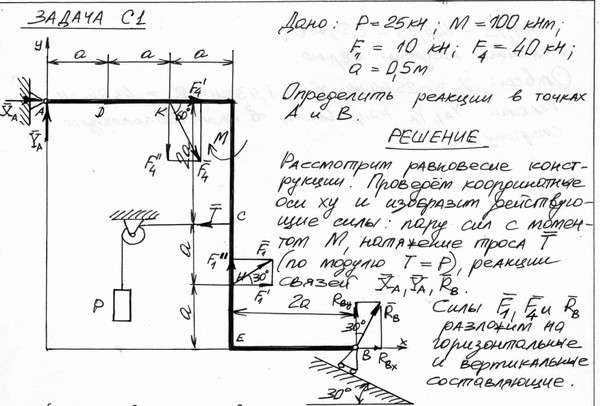 ЗАДАЧА С1
Дано: P = 25 кН; M = 100 кНм;
F₁ = 10 кН; F₄ = 40 кН;
a = 0,5 м
Определить реакции в точках
А и В.
РЕШЕНИЕ
Рассмотрим равновесие конст-
рукции. Проведём координатные
оси xy и изобразим действую-
щие силы: пару сил с момен-
том M, натяжение троса T̄
(по модулю T = P), реакции
связей X̄A, ȲA, R̄B.
Силы F̄₁, F̄₄ и R̄B
разложим на
горизонтальные
и вертикальные
составляющие.
y
a
a
a
X̄A
A
D
K
F₄'
60°
ȲA
F₄''
F̄₄
M
2a
C
T̄
a
F₁''
F̄₁
H
30°
F₁'
P
a
2a
RBy
R̄B
30°
E
B
RBx
x
30°